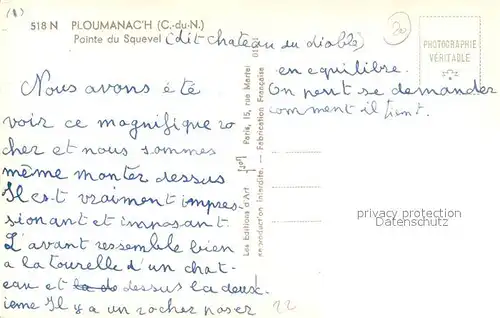 (1)
518 N PLOUMANAC'H (C.-du-N.)
Pointe du Squevel (dit chateau du diable)
20
PHOTOGRAPHIE
VÉRITABLE
Nous avons été
voir ce magnifique ro
cher et nous sommes
même monter dessus
Il est vraiment impres-
sionant et imposant.
L'avant ressemble bien
a la tourelle d'un chat-
eau et la de dessus la deux-
ieme Il y a un rocher poser
en equilibre.
On peut se demander
comment il tient.
Les Editions d'Art Paris, 15, rue Martel
Reproduction Interdite. - Fabrication Française
privacy protection
Datenschutz
22